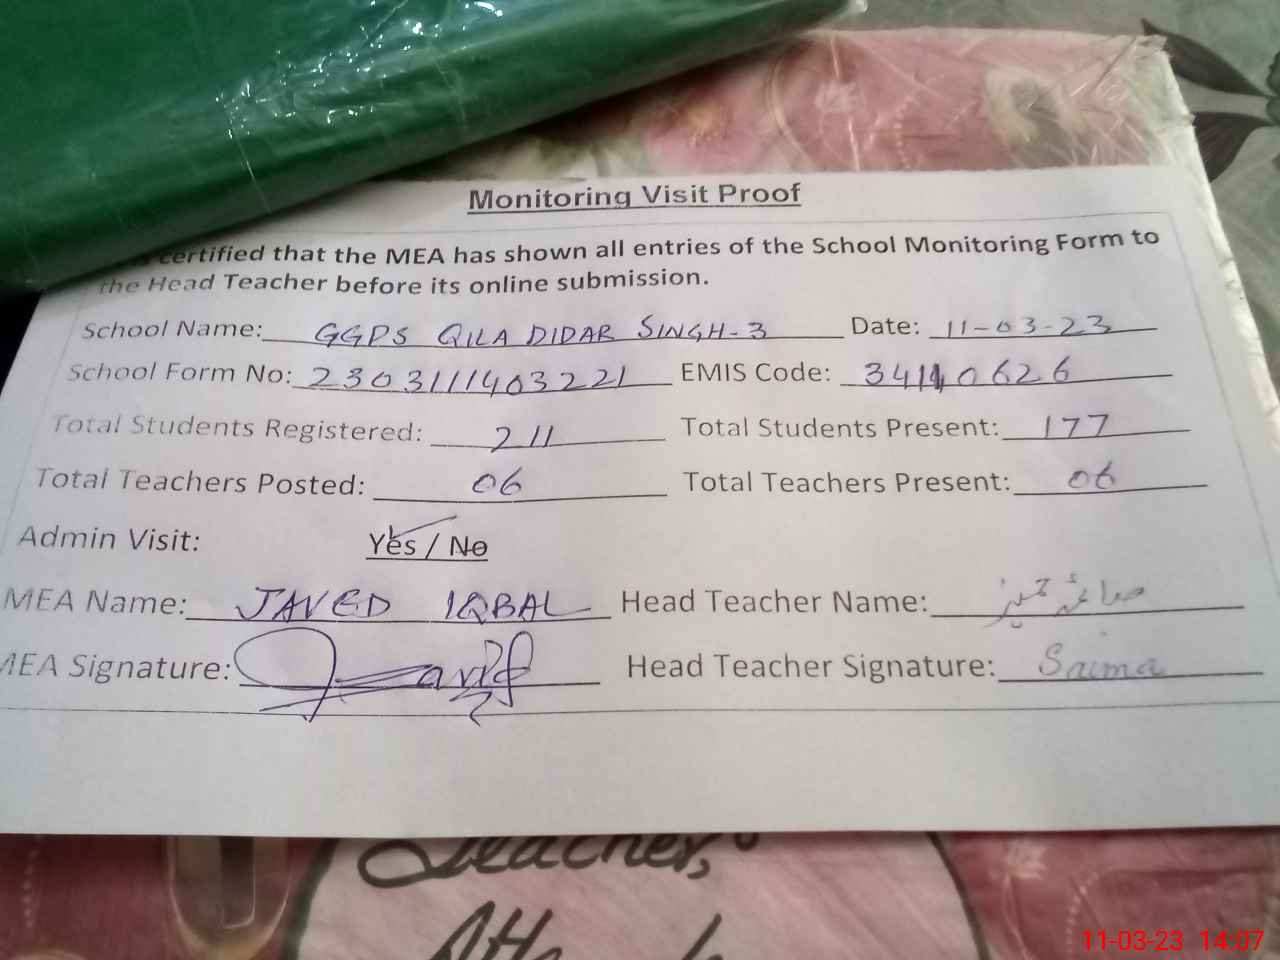 Monitoring Visit Proof
certified that the MEA has shown all entries of the School Monitoring Form to
the Head Teacher before its online submission.
School Name: GGPS QILA DIDAR SINGH-3 Date: 11-03-23
School Form No: 2303111403221 EMIS Code: 34110626
Total Students Registered: 211 Total Students Present: 177
Total Teachers Posted: 06 Total Teachers Present: 06
Admin Visit: Yes / No
MEA Name: JAVED IQBAL Head Teacher Name:
MEA Signature: Head Teacher Signature: Saima
Teacher,
11-03-23 14:07